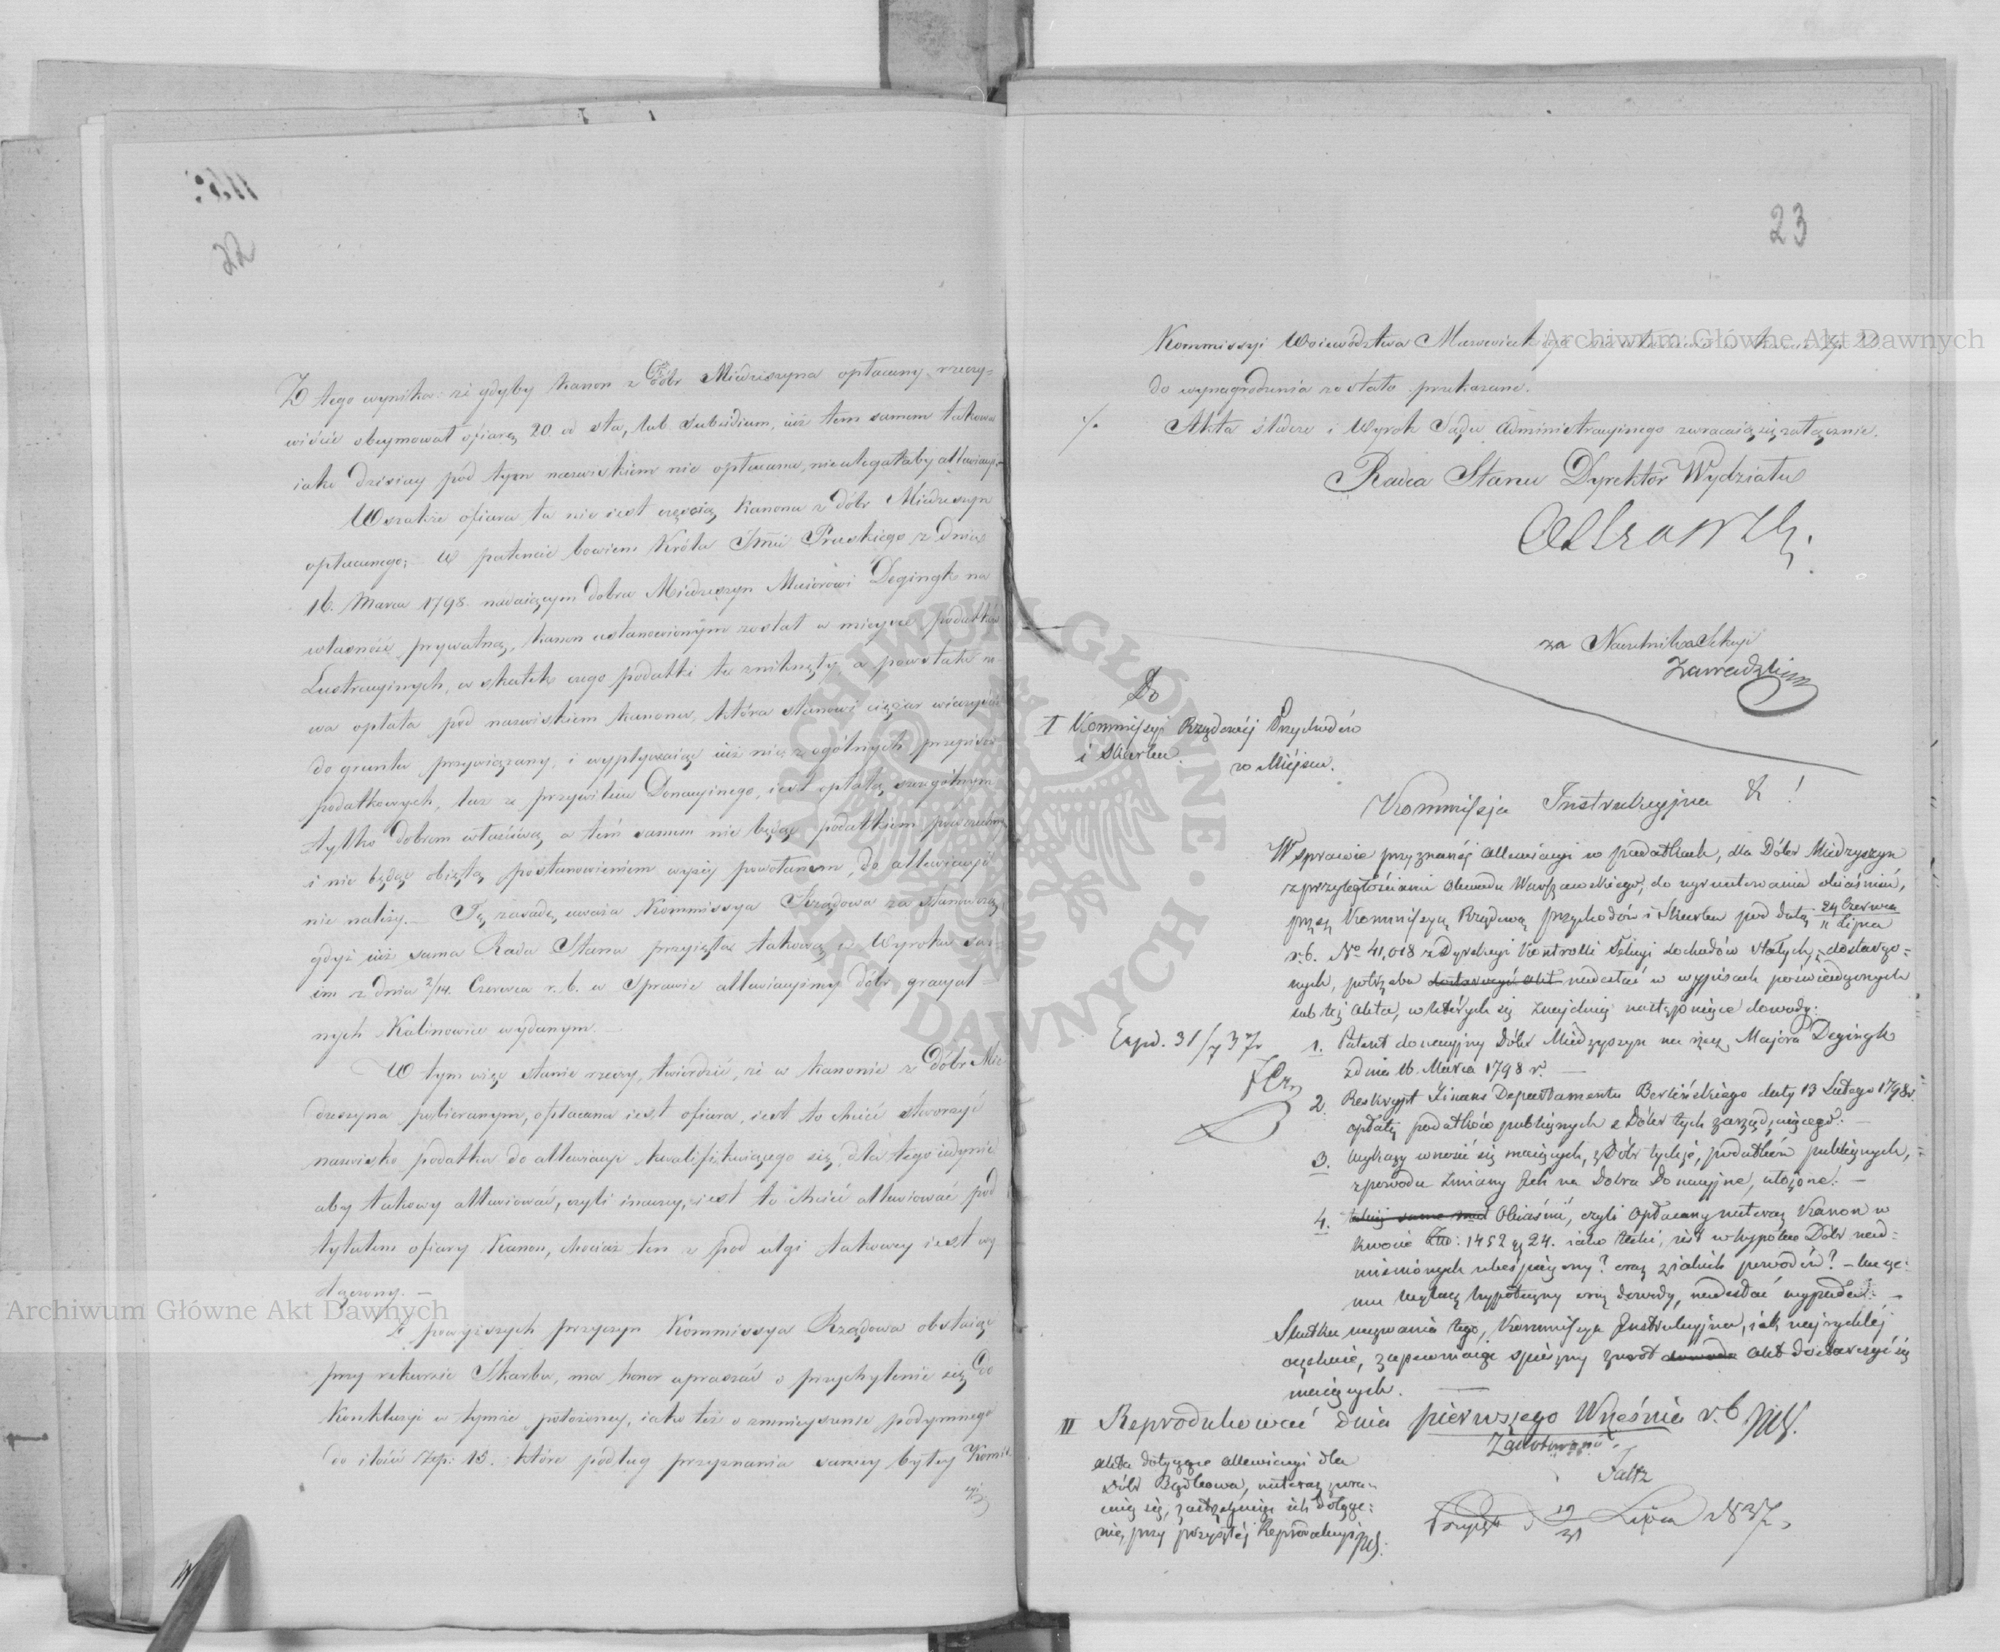 Z tego wynika: że gdyby kanon z Dóbr Miedzeszyna opłacany, rzeczy-
wiście obeymował ofiarę 20. od sta, lub Subsidium, iuż tem samem takowa
iako dzisiay pod tym nazwiskiem nie opłacana, nieulegałaby allewiacyi.
Wszakże ofiara ta nie iest częścią Kanonu z dóbr Miedzeszyn
opłacanego; w patencie bowiem Króla Jmci Pruskiego z dnia
16. Marca 1798. nadaiącym dobra Miedzeszyn Maiorowi Degingk na
własność prywatną, kanon ustanowionym został w mieysce podatków
Lustracyinych, w skutek czego podatki te zniknęły, a powstała no-
wa opłata pod nazwiskiem kanonu, która stanowi ciężar wieczysty
do gruntu przywiązany, i wypływaiąc iuż nie z ogólnych przepisów
podatkowych, lecz z przywileiu Donacyinego, iest opłatą szczególnym
tylko dobrom właściwą, a tem samem nie będąc podatkiem powszechnym
i nie będąc obiętą postanowieniem wyżey powołanem, do allewiacyi
nie należy. — Tę zasadę uważa Kommissya Rządowa za stanowczą
gdyż iuż sama Rada Stanu przyięła takową w Wyroku swo-
im z dnia 2/14. Czerwca r. b. w Sprawie allewiacyiney dóbr gracyal-
nych Kalinowice wydanym.
W tym więc stanie rzeczy, twierdzić, że w kanonie z Dóbr Mie-
dzeszyna pobieranym, opłacana iest ofiara, iest to chcieć stworzyć
nazwisko podatku do allewiacyi kwalifikuiącego się, dla tego iedynie
aby takowy allewiować, czyli inaczey, iest to chcieć allewiować pod
tytułem ofiary Kanon, chociaż ten z pod ulgi takowey iest wy-
łączony. —
Z powyższych przyczyn Kommissya Rządowa obstaiąc
przy rekursie Skarbu, ma honor upraszać o przychylenie się do
Konkluzyi w tymże położoney, iako też o zmnieyszenie podymnego
do ilości Złp: 15. które podług przyznania samey byłey Kommis-
syi
23
Kommissyi Województwa Mazowieckiego
do wynagrodzenia zostało przekazane.
·/. Akta śledcze i Wyrok Sądu Administracyinego zwracaią się załącznie.
Radca Stanu Dyrektor Wydziału
za Naczelnika Sekcyi
Zawadzki
Do
I Kommissyi Rządowéj Przychodów
i Skarbu.
w Miéjscu.
Kommissja Instrukcyjna &!
W sprawie przyznanéj allewiacyi w podatkach, dla Dóbr Miedzyszyn
z przyległościami Obwodu Warszawskiego, do ugruntowania obiaśnień,
przez Kommissyą Rządową przychodów i Skarbu pod datą 29 Czerwca / 11 Lipca
r. b. No 41,018 z Dyrekcyi Kontrolli Sekcyi dochodów stałych, dostarczo=
nych, potrzeba dostarczyć akt nadesłać w wypisach poświadczonych
lub też akta, w których się znajdują następujące dowody:
Expd. 31/7 37r
1. Patent donacyjny Dóbr Miedzyszyn na rzecz Majora Degingk
z dnia 16. Marca 1798 r. —
2. Reskrypt Finans Departamentu Berlińskiego daty 13 Lutego 1798 r.
opłatę podatków publicznych z Dóbr tych zarządzającego. —
3. Wykazy wnosić się maiących, z Dóbr tychże, podatków publicznych,
z powodu zmiany Ich na Dobra Donacyjne, ułożone. —
4. Obiaśnić, czyli opłacany niteraz Kanon w
kwocie : 1452 gr 24. iako taki, iest w hypotece Dóbr nad=
mienionych ubespieczony? oraz z iakich powodów? —
nu wykaz hypoteczny oraz dowody, nadesłać wypada. —
Skutku wezwania tego, Kommissyia Instrukcyjna, iak najrychléj
oczekuie, zapewniaiąc spieszny zwrot dowodów akt dostarczyć się
maiących. —
II Reprodukować dnia pierwszego Września r. b
Zanotowano
Faltz
akta dotyczące allewiacyi dla
Dóbr Bądkowa, niteraz zwra-
caią się, zastrzegaiąc ich dołącze=
nie, przy przyszłéj Reprodukcyi
19/31 Lipca 1837r